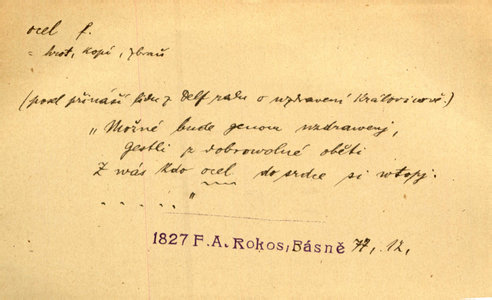 ocel f.
= hrot, kopí, zbraň
(posel přináší lidu z Delf radu o uzdravení Královicově.)
„Možné bude genom uzdrawenj,
gestli z dobrowolné oběti
Z wás kdo ocel do srdce si wtopj.
. . . . . "
1827 F. A. Rokos, Básně 77, 12,